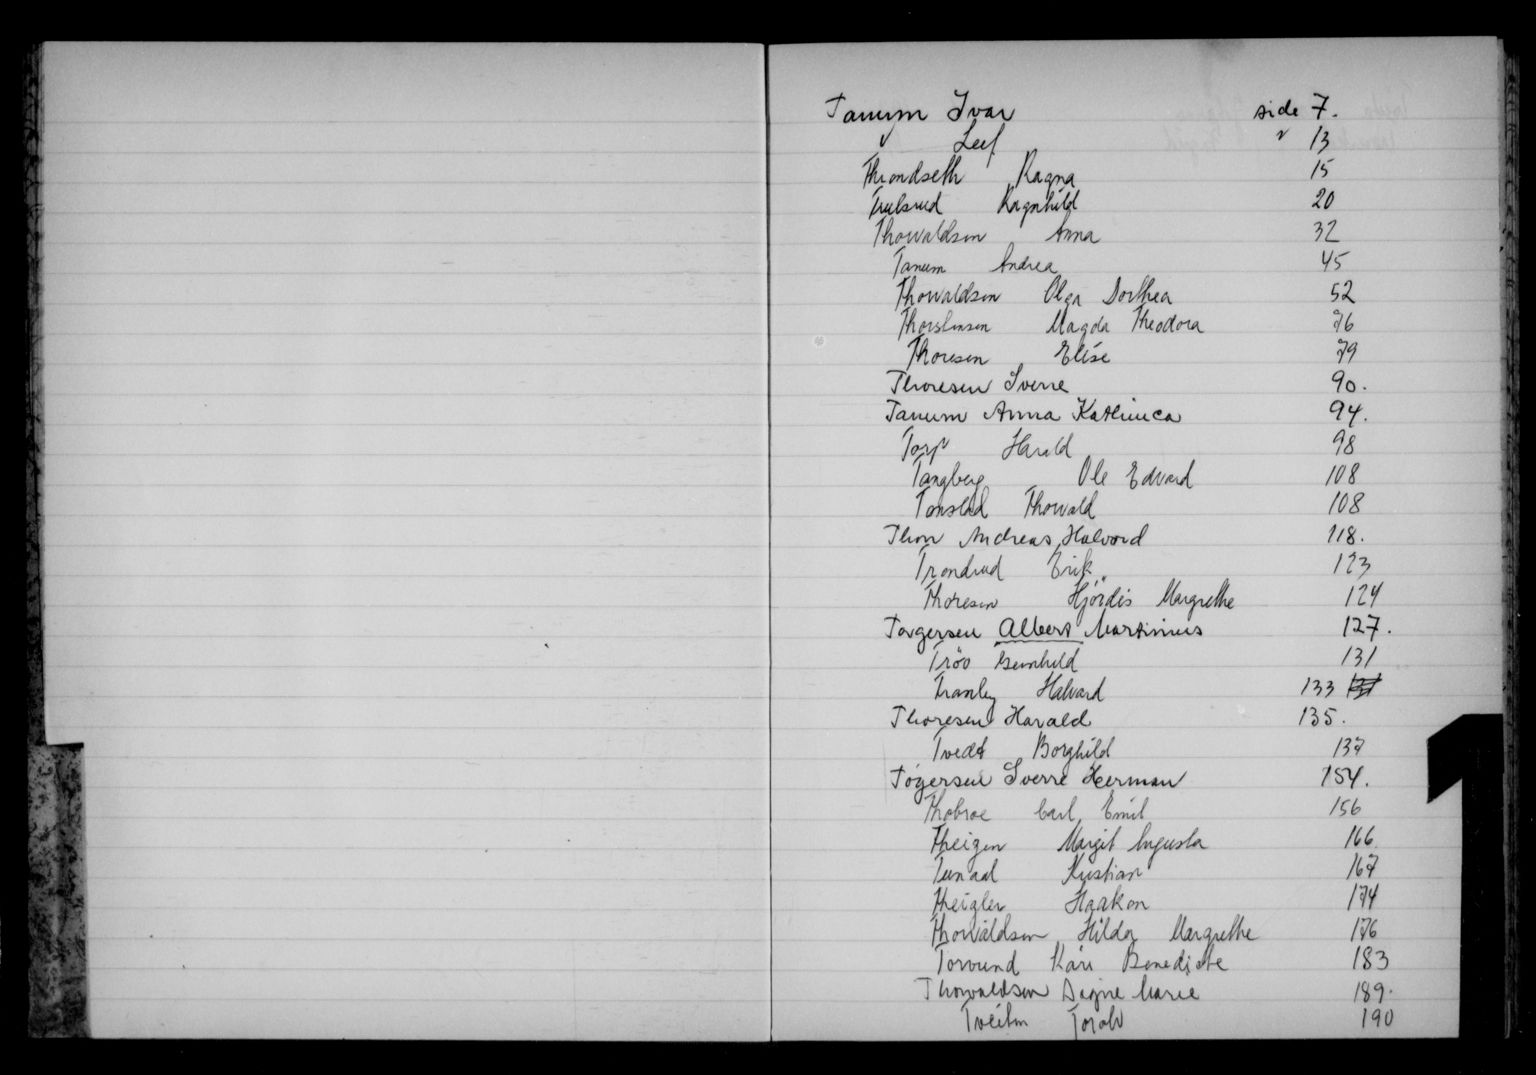 Tanum Ivar side 7.
" Leif " 13
Throndseth Ragna 15
Trulsrud Ragnhild 20
Thorvaldsen Anna 32
Tanum Andrea 45
Thorvaldsen Olga Dorthea 52
Thorstensen Magda Theodora 76
Thoresen Elise 79
Thoresen Sverre 90.
Tanum Anna Kathinca 94.
Torp Harald 98
Tangberg Ole Edvard 108
Tonstad Thorvald 108
Thon Andreas Halvord 118.
Trondrud Erik 123
Thoresen Hjördis Margrethe 124
Torgersen Albert Martinius 127.
Tröo Gunhild 131
Tranby Halvard 133
Thoresen Harald 135.
Tvedt Borghild 137
Tøgersen Sverre Herman 154.
Thobroe Carl Emil 156
Theigen Margit Augusta 166
Tunaal Kristian 167
Theigler Haakon 174
Thorvaldsen Hilda Margrethe 176
Torvund Kári Benedicte 183
Thorvaldsen Dagne Marie 189.
Tveiten Torolv 190